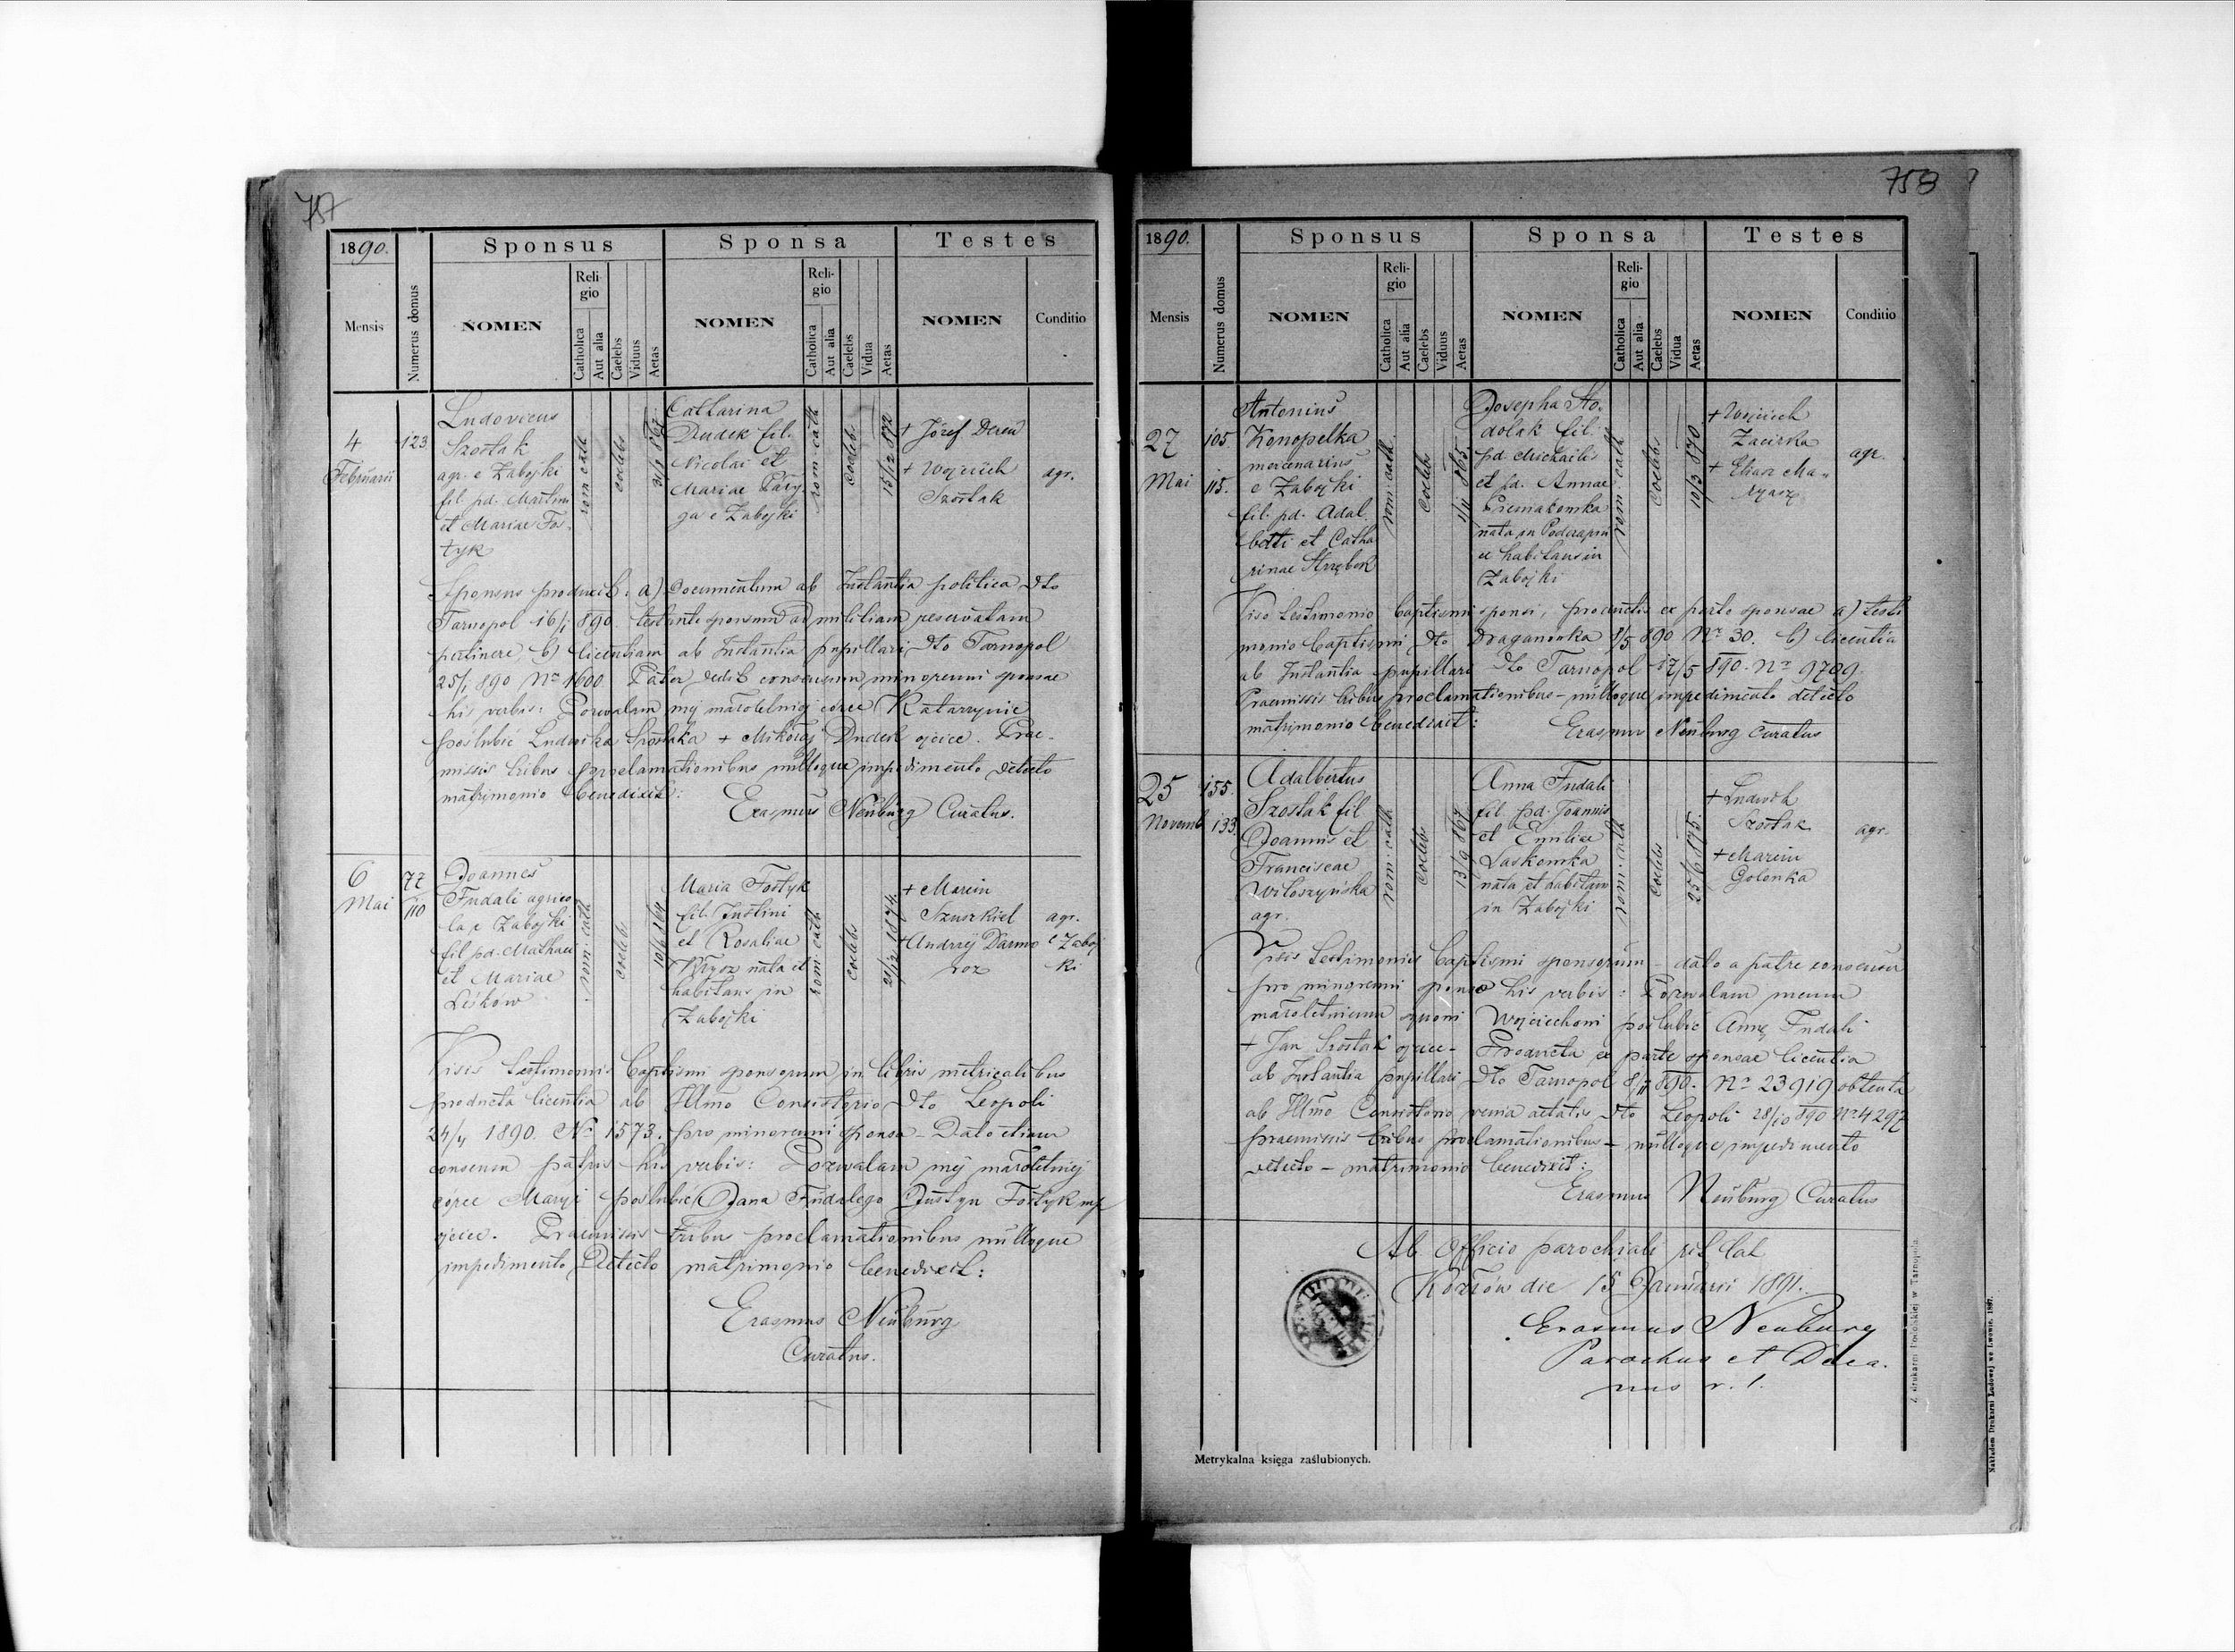 757
1890.
Mensis
Numerus domus
Sponsus
NOMEN
Religio
Catholica
Aut alia
Caelebs
Viduus
Aetas
Sponsa
NOMEN
Religio
Catholica
Aut alia
Caelebs
Vidua
Aetas
Testes
NOMEN
Conditio
4
Februarii
123
Ludovicus
Szostak
agr. e Zabojki
fil. pd. Martini
et Mariae Fos-
tyk
rom. cath
coelebs
Catharina
Dudek fil.
Nicolai et
Mariae Pary-
ga e Zabojki
rom. cath
coelebs
15/12 872
+ Józef Dereń
+ Wojciech
Szostak
agr.
Sponsus produxit: a) Documentum ab Instantia politica dto
Tarnopol 16/1 890. testante sponsum ad militiam reservatam
pertinere, b) licentiam ab Instantia pupillari, dto Tarnopol
25/1 890 Nr 1600. Pater dedit consensum minorenni sponsae
his verbis: Pozwalam mej małoletniej córce Katarzynie
poślubić Ludwika Szostaka + Mikołaj Dudek ojciec. Prae-
missis tribus proclamationibus nulloque impedimento detecto
matrimonio benedixit:
Erasmus Neuburg Curatus.
6
Mai
77
110
Joannes
Fudali agrico
la e Zabojki
fil pd. Mathaei
et Mariae
Leśków
rom. cath
coelebs
10/6 864
Maria Fostyk
fil. Justini
et Rosaliae
nata et
habitans in
Zabojki
rom. cath
coelebs
21/12 1874
+ Marcin
Szuszkiel
+ Andrzej Darmo
roz
agr.
e Zaboj
ki
Visis testimoniis baptismi sponsorum in libris metricalibus
producta licentia ab Illmo Consistorio dto Leopoli
24/4 1890. Nr 1573. pro minorenni sponsa - Dato etiam
consensu patris his verbis: Pozwalam mej małoletniej
córce Maryi poślubić Jana Fudalego Justyn Fostyk mp
ojciec. Praemissis tribus proclamationibus nulloque
impedimento Detecto matrimonio benedixit:
Erasmus Neuburg
Curatus.
758
1890.
Mensis
Numerus domus
Sponsus
NOMEN
Religio
Catholica
Aut alia
Caelebs
Viduus
Aetas
Sponsa
NOMEN
Religio
Catholica
Aut alia
Caelebs
Vidua
Aetas
Testes
NOMEN
Conditio
27
Mai
105
115.
Antonius
Konopelka
mercenarius
e Zabojki
fil. pd. Adal
berti et Catha
rinae Strzębek
rom. cath.
coelebs
Josepha Sto-
dolak fil.
pd Michaelis
et pd. Annae
Pieniakowska
nata in
et habitans in
Zabojki
rom. cath
coelebs
10/3 870
+ Wojciech
Zacirka
+ Eliasz Ma-
tyasz
agr.
Viso testimonio baptismi sponsi, productis ex parte sponsae a) testi
monio baptismi dto Draganówka 8/5 890 Nr 30. b) licentia
ab Instantia pupillari dto Tarnopol 17/5 890. Nr 9709.
Praemissis tribus proclamationibus - nulloque impedimento detecto
matrimonio benedixit:
Erasmus Neuburg Curatus
25
Novemb
155.
133.
Adalbertus
Szostak fil
Joannis et
Franciscae
Wiłoszyńska
agr.
rom. cath
coelebs
13/9 867
Anna Fudali
fil pd. Joannis
et Emiliae
Laskowska
nata et habitans
in Zabojki
rom. cath
coelebs
25/6 875.
+ Ludwik
Szostak
+ Marcin
Golonka
agr.
Visis testimoniis baptismi sponsorum - dato a patre consensu
pro minorenni sponso his verbis: Pozwalam memu
małoletniemu synowi Wojciechowi poślubić Annę Fudali
+ Jan Szostak ojciec - Producta ex parte sponsae licentia
ab Instantia pupillari dto Tarnopol 8/11 890. Nr 23919 obtenta
ab Illmo Consistorio venia aetatis dto Leopoli 28/10 890 Nr 4297
praemissis tribus proclamationibus - nulloque impedimento
detecto - matrimonio benedixit:
Erasmus Neuburg Curatus
Ab Officio parochiali rit lat
Kozłów die 15 Januarii 1891.
Erasmus Neuburg
Parochus et Deca-
nus r. l.
Metrykalna księga zaślubionych.
Nakładem Drukarni Ludowej we Lwowie. 1887.